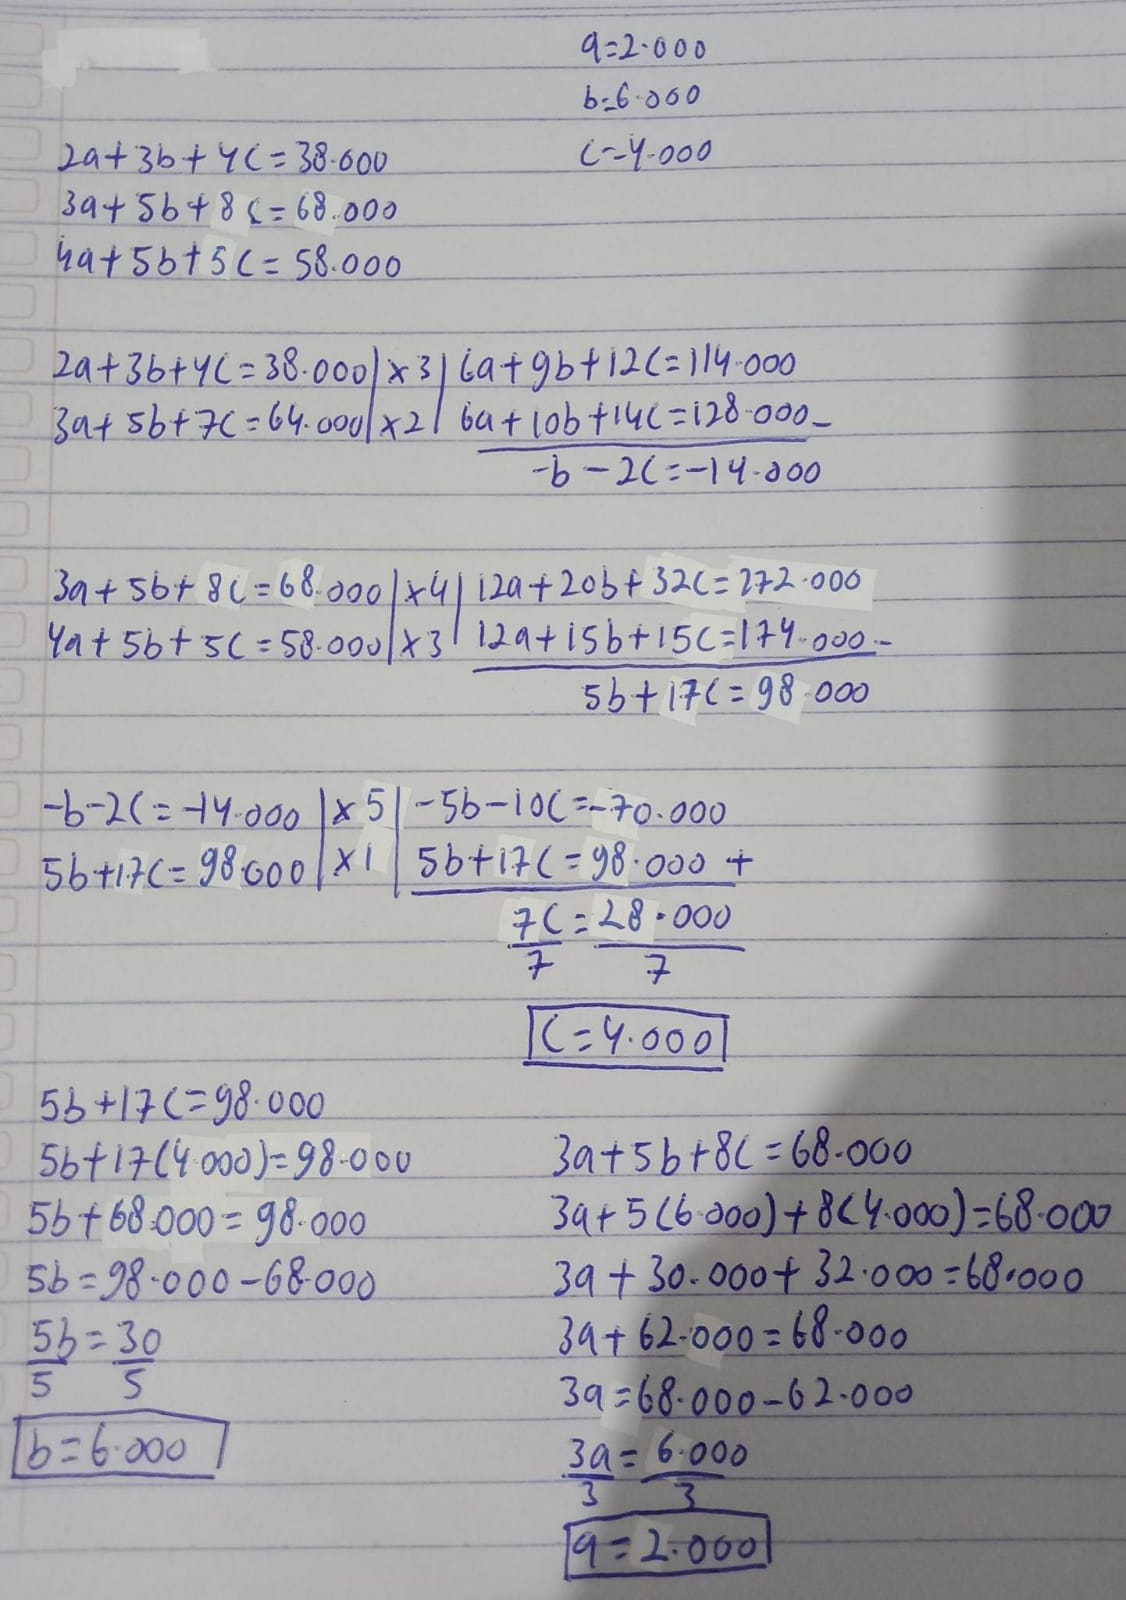 a=2.000
b=6.000
c=4.000
2a+3b+4c=38.000
3a+5b+8c=68.000
4a+5b+5c=58.000
2a+3b+4c=38.000|x3|6a+9b+12c=114.000
3a+5b+7c=64.000|x2|6a+10b+14c=128.000-
-b-2c=-14.000
3a+5b+8c=68.000|x4|12a+20b+32c=272.000
4a+5b+5c=58.000|x3|12a+15b+15c=174.000-
5b+17c=98.000
-b-2c=-14.000|x5|-5b-10c=-70.000
5b+17c=98.000|x1|5b+17c=98.000+
7c=28.000
7 7
c=4.000
5b+17c=98.000
5b+17(4.000)=98.000
5b+68.000=98.000
5b=98.000-68.000
5b=30
5 5
b=6.000
3a+5b+8c=68.000
3a+5(6.000)+8(4.000)=68.000
3a+30.000+32.000=68.000
3a+62.000=68.000
3a=68.000-62.000
3a=6.000
3 3
a=2.000